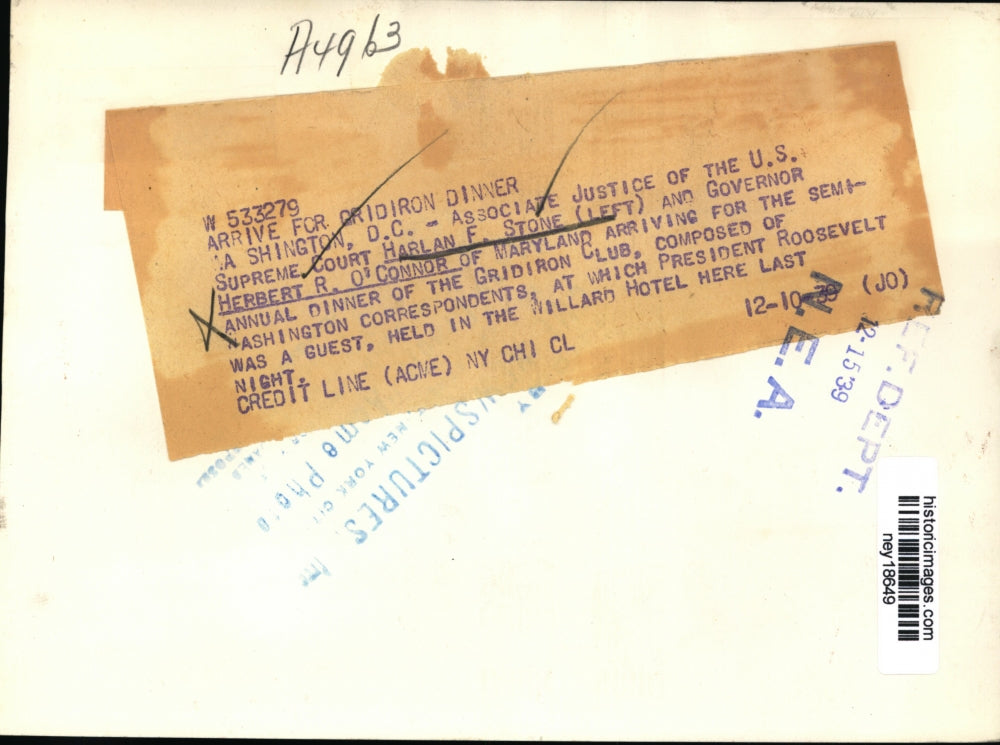 A4963
W 533279
ARRIVE FOR GRIDIRON DINNER
WASHINGTON, D.C. – ASSOCIATE JUSTICE OF THE U.S.
SUPREME COURT HARLAN F. STONE (LEFT) AND GOVERNOR
HERBERT R. O'CONNOR OF MARYLAND ARRIVING FOR THE SEMI-
ANNUAL DINNER OF THE GRIDIRON CLUB, COMPOSED OF
WASHINGTON CORRESPONDENTS, AT WHICH PRESIDENT ROOSEVELT
WAS A GUEST, HELD IN THE WILLARD HOTEL HERE LAST
NIGHT.
CREDIT LINE (ACME) NY CHI CL
12-10-39 (JO)
N.E.A.
12-15 39
REF. DEPT.
BY
NEWSPICTURES, Inc
NEW YORK CITY
Acme Photo
historicimages.com
ney18649